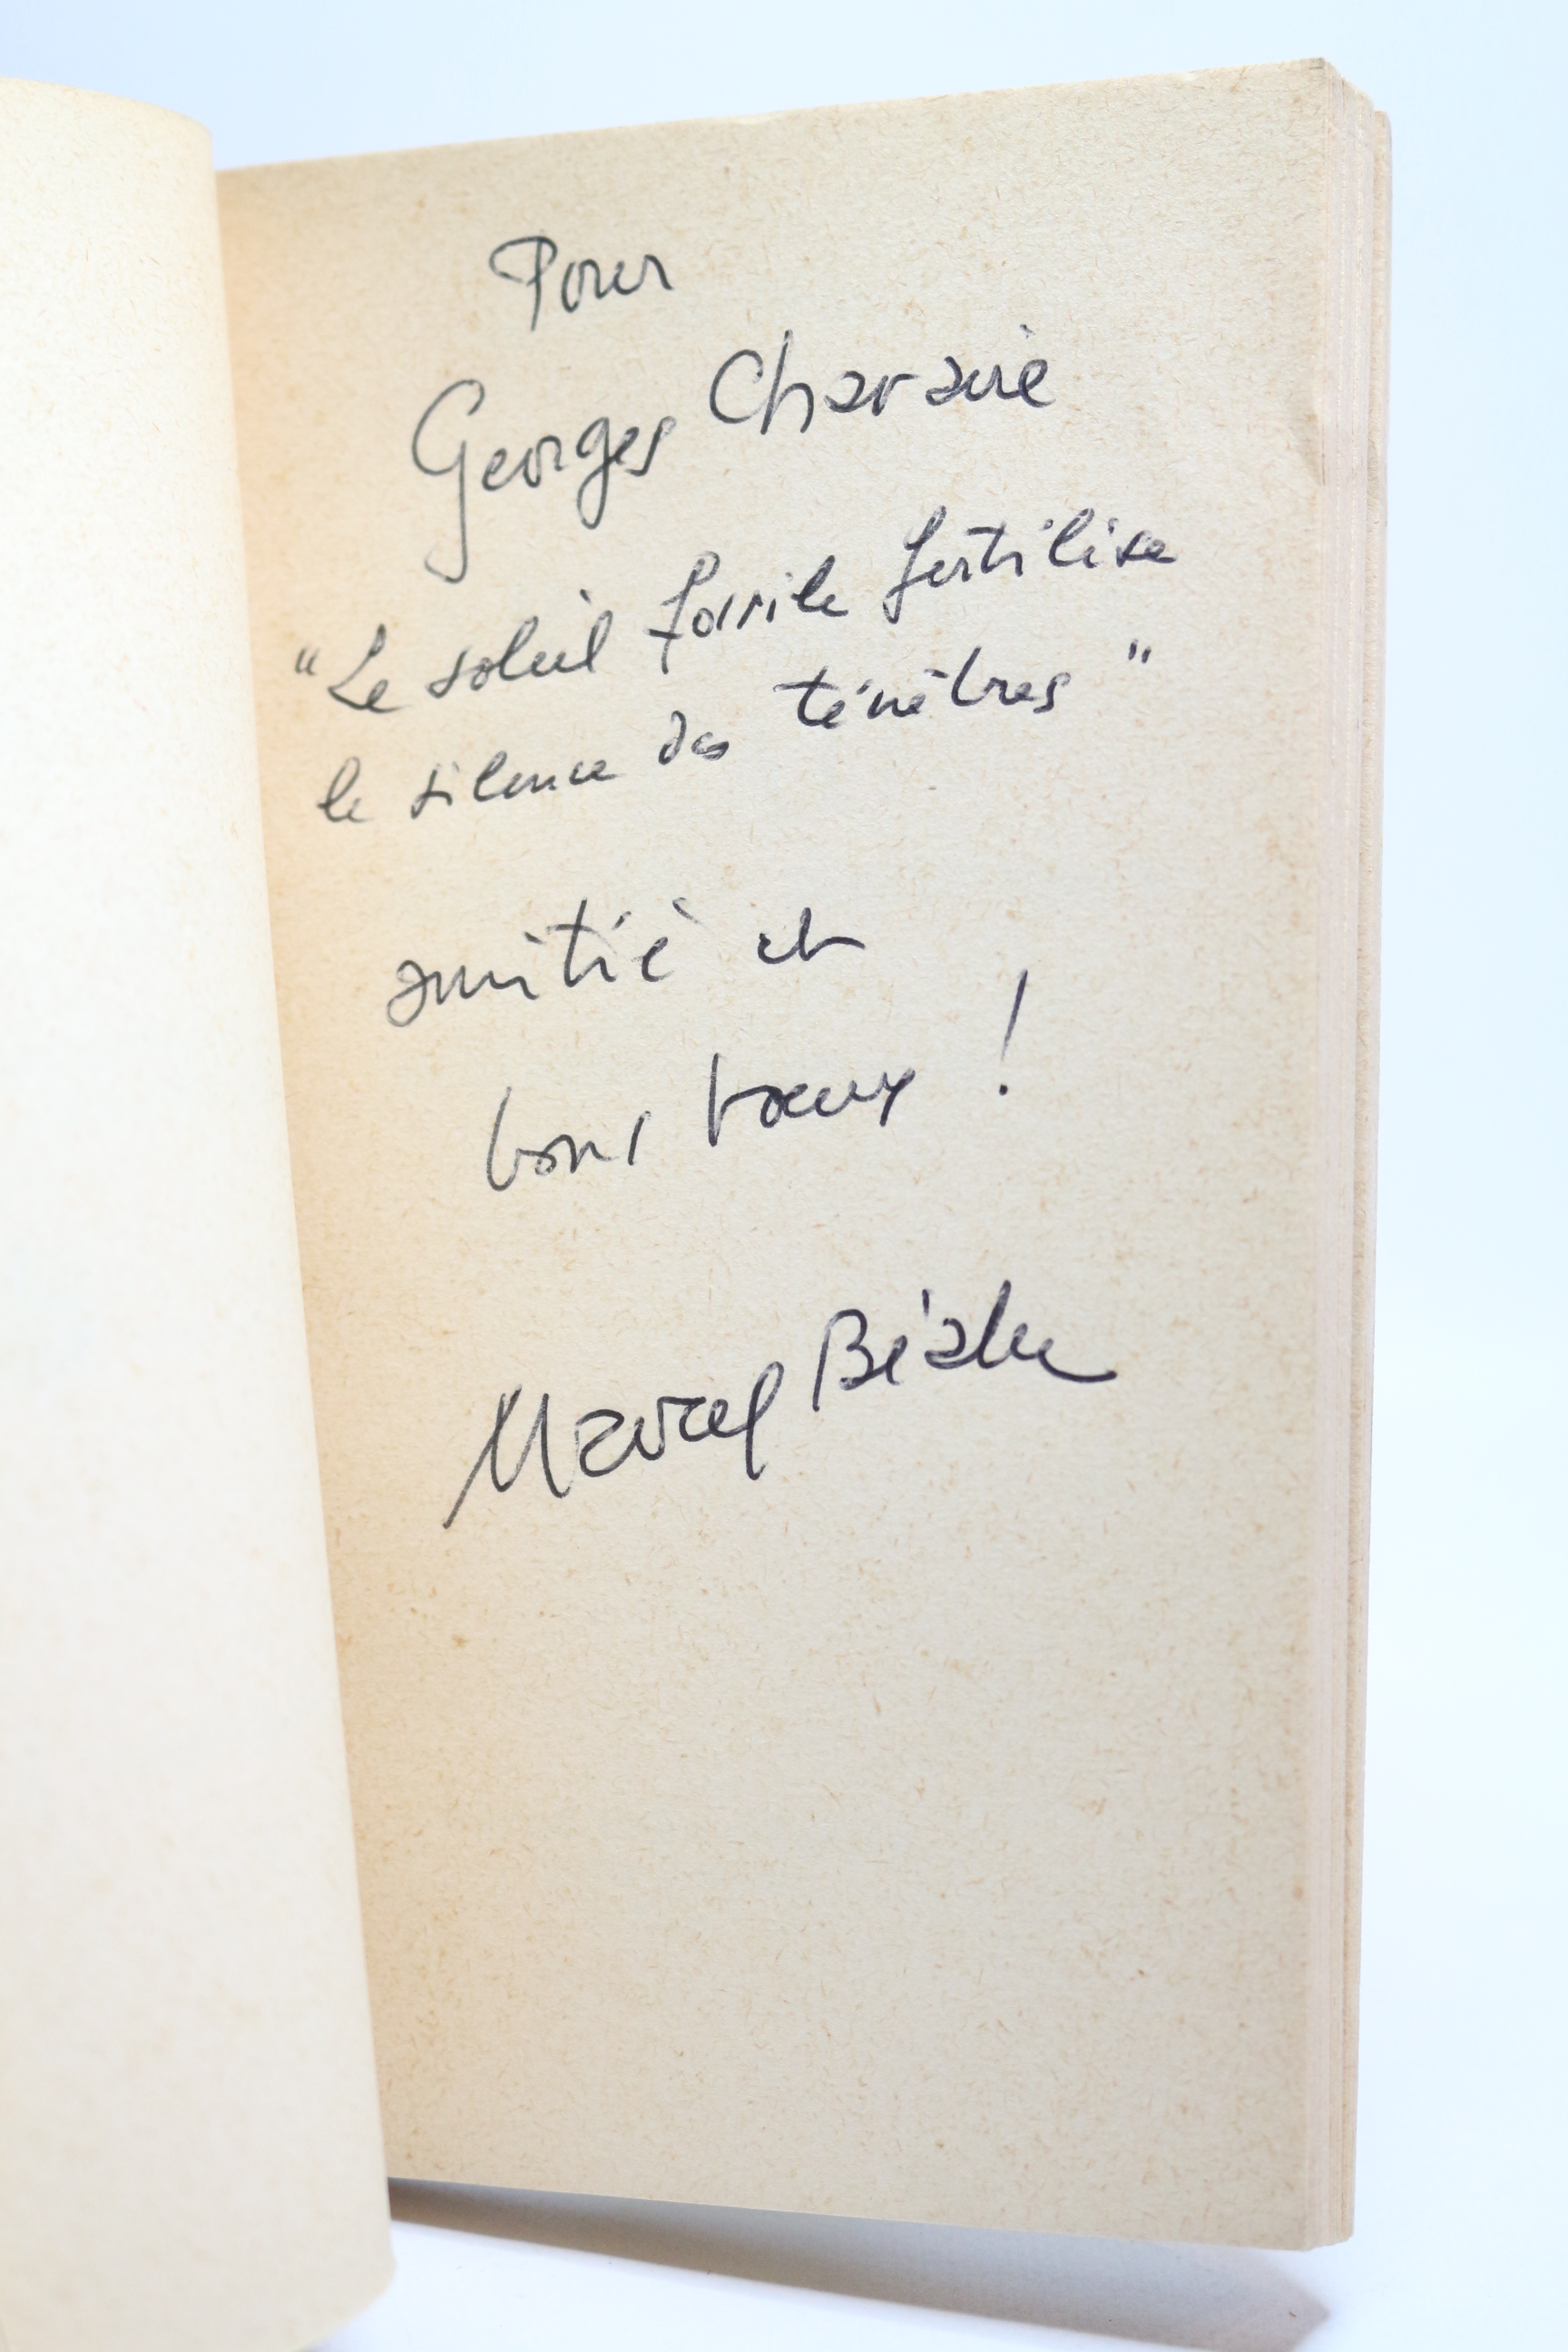 Pour
Georges Charaire
"Le soleil fossile fertilise
le silence des ténèbres"
amitié et
bons voeux !
Marcel Béalu